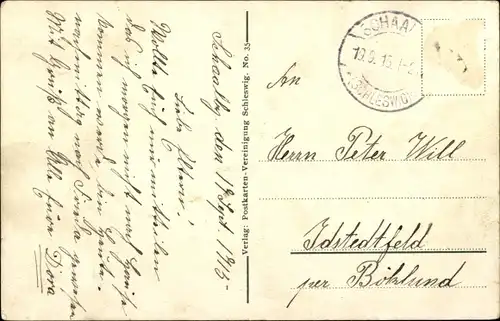 Schaalby, den 19 Sept 1915.
Liebe Eltern!
Wollte Euch nur mitteilen
das ich morgen nicht nach Hause
kommen werde, bin heute
nach
Mit Gruß an Alle Eure Dora
Verlag: Postkarten-Vereinigung Schleswig. No. 35
SCHAAL
SCHLESWIG
An
Herrn Peter Will
Idstedtfeld
per Böklund